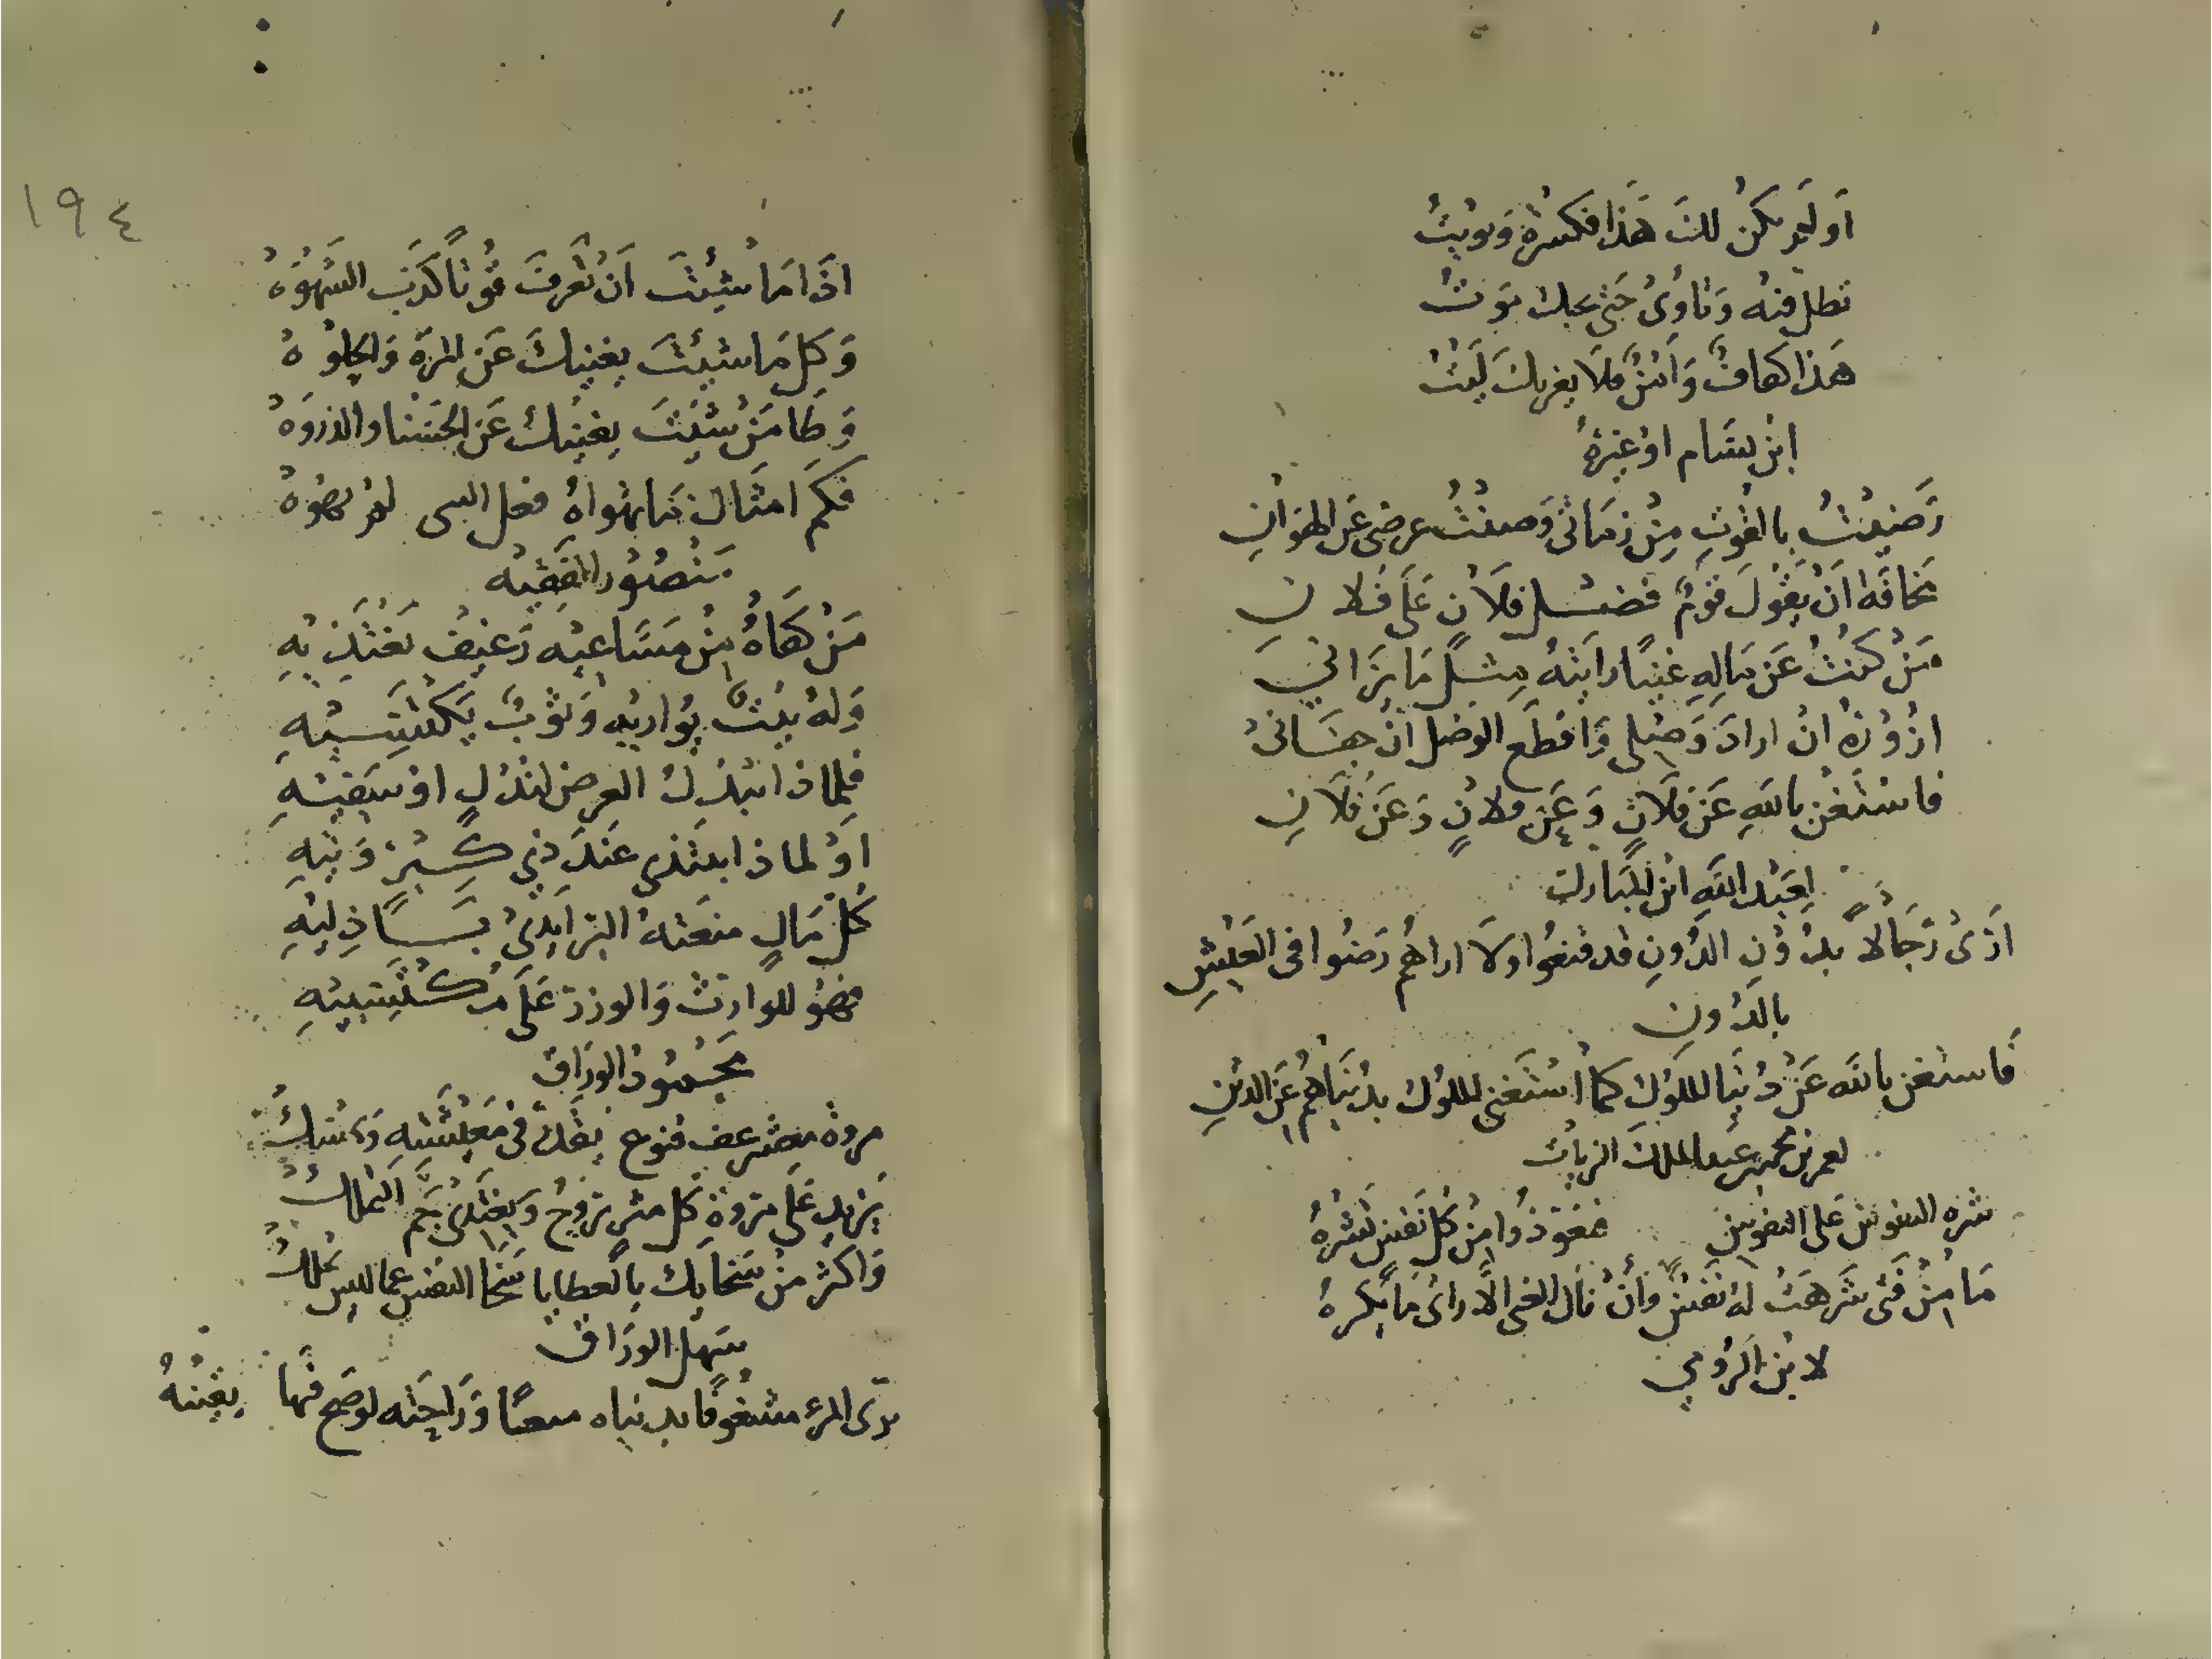 اَو لَم يكنْ لكَ هَذا فكسرة وَبويتُ
تظل فيه وَتاوِى حَتى يجيك مَوتُ
هَذا كفافٌ وَامنٌ فلَا يغررك لَيتُ
ابن بسَام اوغيرهُ
رَضِيْتُ بالقُوتِ مِنْ زمَانى وَصنْتُ عرضى عَن الهوَانِ
مخَافَه اَنْ يَقُولَ قَومٌ فضْل فلَانٍ عَلَى فلانِ
مَنْ كنتُ عَن مَالِهِ غنيًا رايتهُ مِثلَ مَا يَرَانى
ازُورُهُ انْ ارادَ وَصْلى وَاقطَع الوصْل انْ جفَانى
فاستَغنِ باللهِ عَنْ فلَانٍ وَعَن فلانٍ وَعَنْ فلَانِ
لِعَبْد اللهِ ابن المبَارك
ارَىْ رجَالًا بدُونِ الدُونِ قد قنعُوا ولَا اراهُم رَضُوا فى العَيْشِ
بالدُونِ
فَاستغن بالله عَنْ دُنيَا الملُوكِ كما استَغنى الملُوك بدُنيَاهُم عَن الدينِ
لعمر بن محمد بن عَبد الملك الزيات
شره النفوس عَلى النفوس فتعَوذُوا مِنْ كل نَفس تشْرهُ
مَا مِنْ فَتى شَرهَتْ لهُ نَفسٌ وَانْ نَال الغنى الَّا راىْ مَا يكرهُ
لابن الرُومي
اذَا مَا شئتَ اَنْ تَعرفَ قُوتًا كَذبَ الشَهْوَهْ
وَكل مَا شئتَ يغنيكَ عَن المرةِ وَالحلوهْ
وَطَا مَنْ شئتَ يغنيكَ عَن الحَسْنا والذروَهْ
فكم امثَال مَا تهوَاهُ فعل الشى لم تهوهْ
مَنْصُور الفقيْه
مَنْ كفَاهُ مِنْ مَسَاعيْه رَغيفٌ يَغْتَذيهِ
وَلهُ بيْتٌ يُواريْهِ وَثوْبٌ يَكتَسيْهِ
فلماذا يبْذلُ العِرض لنَذْلٍ اوْسَفيْهِ
اوْ لماذا يبتذى عندَ ذِي كِبْرٍ وَتيهِ
كُل مَالٍ منعَتهُ البر ايدِىْ بَسًا ذِليْهِ
فهوُ للوارثْ وَالوزر عَلَى مُكتَسِبيْهِ
مَحْمُودُ الورَاق
مروة معشر عف قنوع يقلّ فى مَعيْشَتهِ وَيُمسكْ
يَزيد عَلَى مَروَةِ كل مثرٍ يَروحُ وَيغتَدىْ جَم التملكْ
وَاكثر منْ سَخايك بالعطايا سَخا النفس عما ليس تملكْ
سَهْل الورَاق
يرَى المرء مشغُوفًا بدنياه معًا وَرَاحَته لوصَح فيها يقِينُهْ
١٩٤